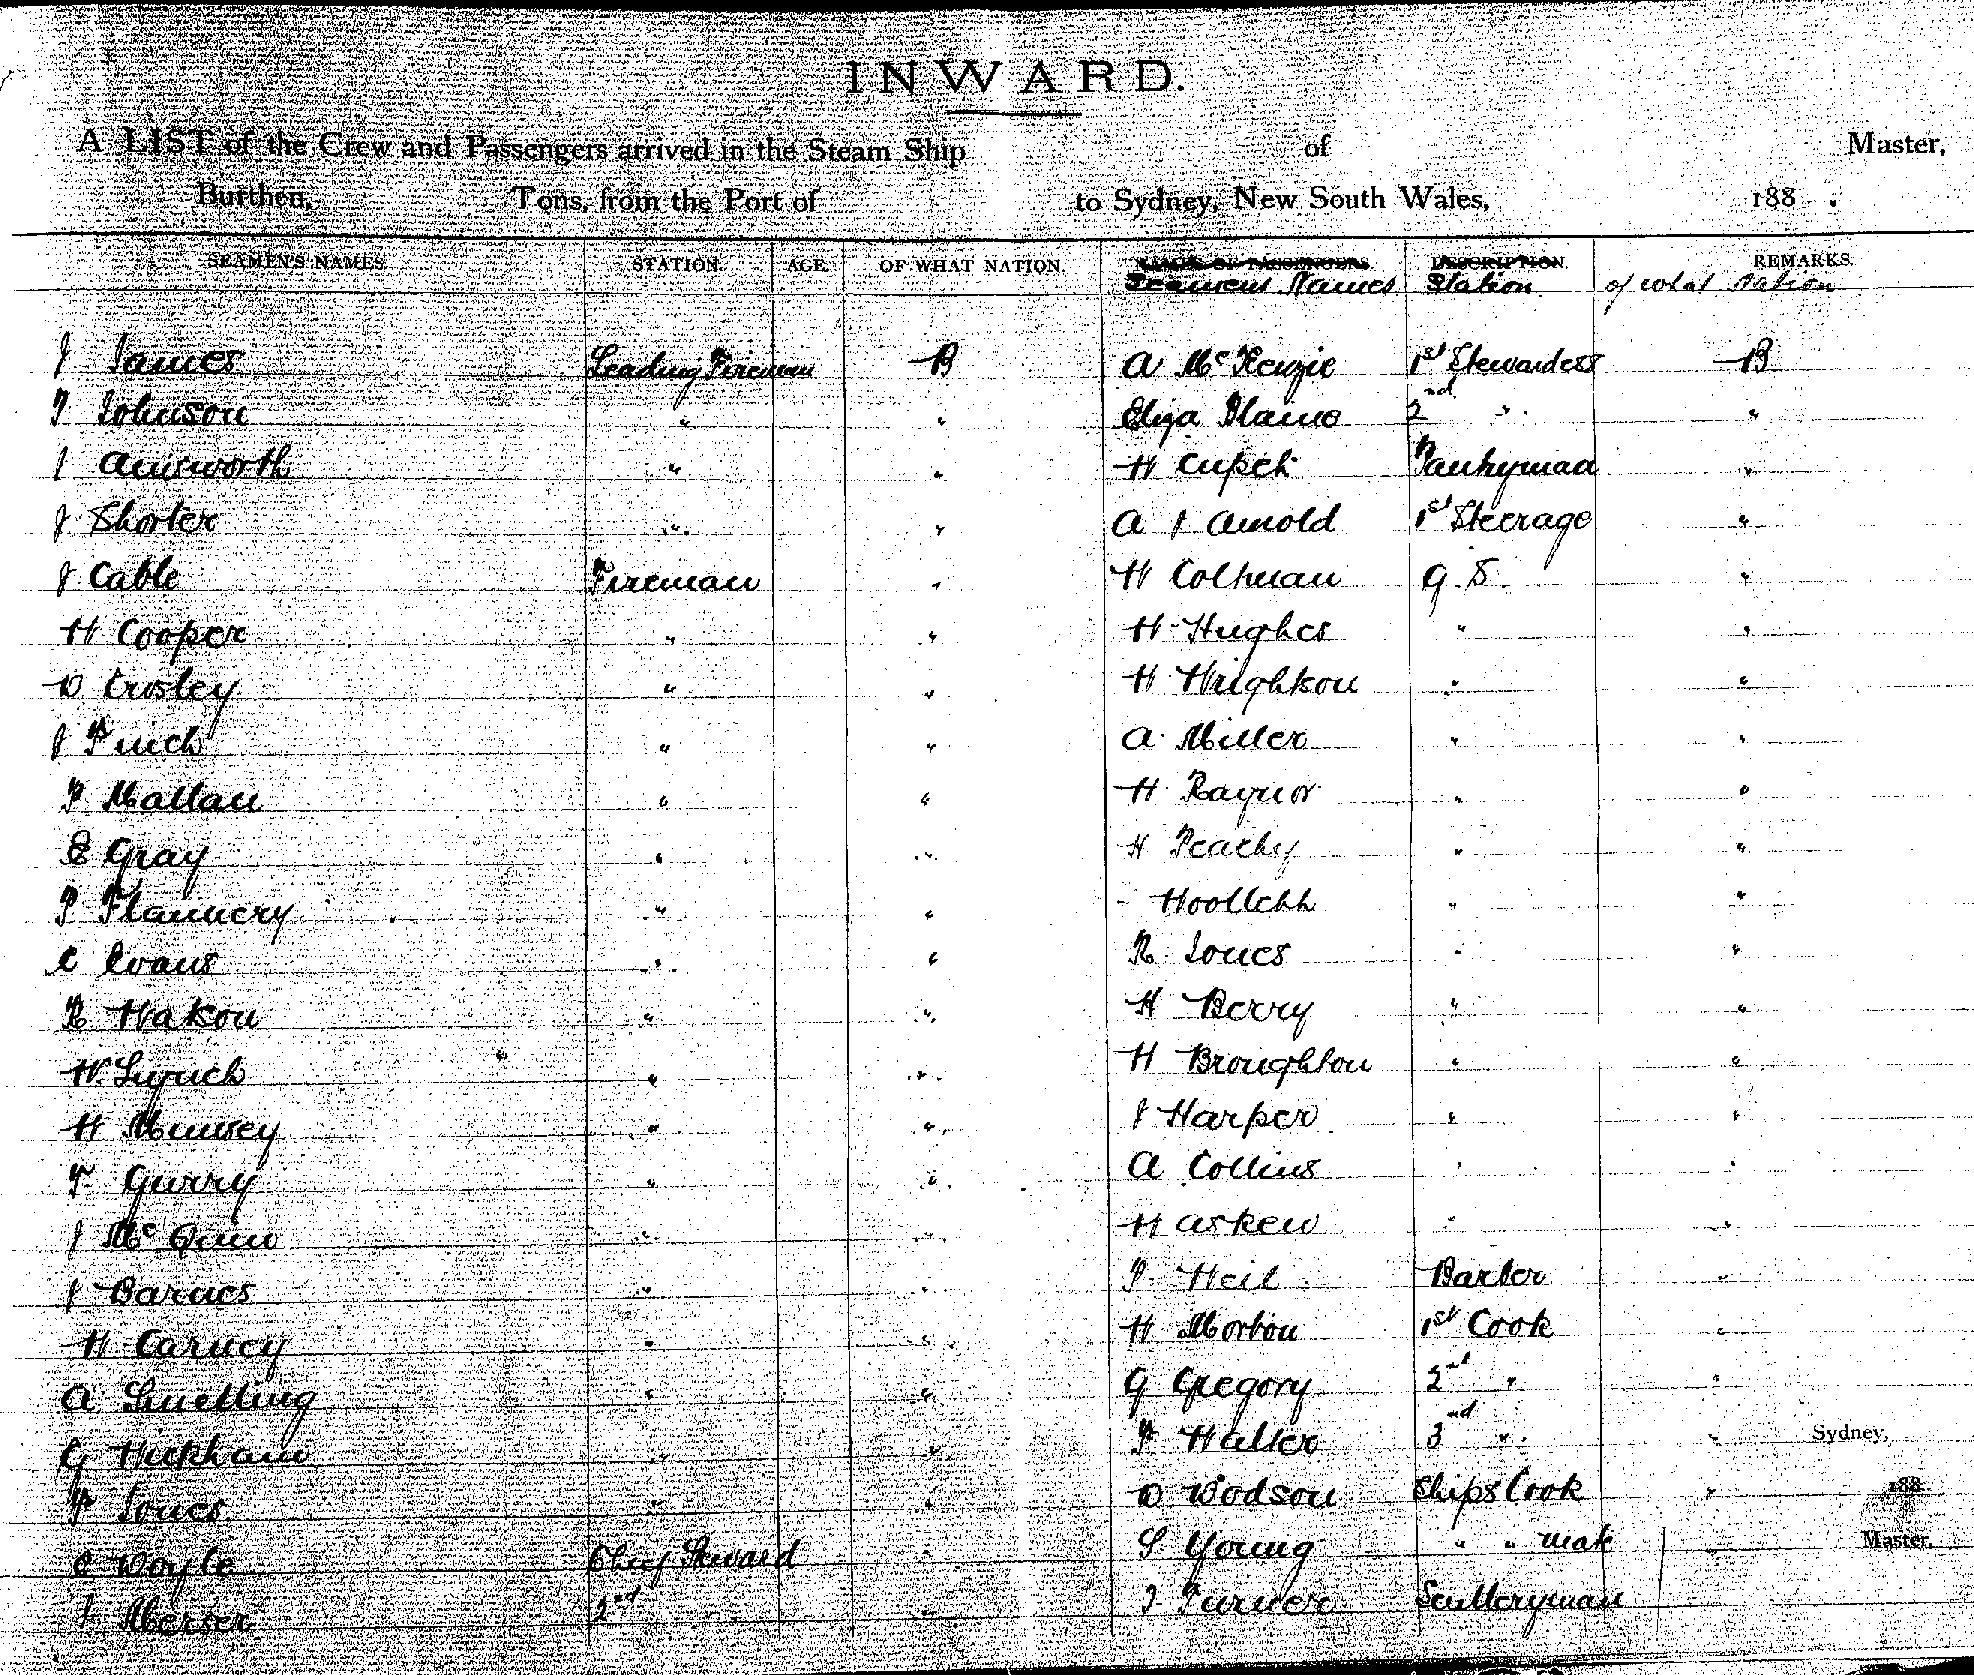 INWARD.
A LIST of the Crew and Passengers arrived in the Steam Ship of Master,
Burthen, Tons, from the Port of to Sydney, New South Wales, 188 .
SEAMEN'S NAMES STATION. AGE. OF WHAT NATION. NAMES OF PASSENGERS. DESCRIPTION. REMARKS.
Seamens Names Station of what Nation
J James Leading Fireman B A McKenzie 1st Stewardess B
F Johnson " " Eliza 2nd " "
J Ainsworth " " H Pantryman "
J Shorter " " A J Arnold 1st Steerage "
J Cable Fireman " W Coleman G. S. "
H Cooper " " H Hughes " "
D Crosley " " H Wrighton " "
J Finch " " A Miller " "
F Mallan " " H Raynor " "
E Gray " " H Peachy " "
P Flannery " " " "
C Evans " " R Jones " "
R Watson " " H Berry " "
W Lynch " " H Broughton " "
H " " J Harper " "
F Gurry " " A Collins " "
J McQuinn " " H Askew " "
J Barnes " " P Heil Barber "
H Carney " " H Morton 1st Cook "
A Snelling " " G Gregory 2nd " "
G Wickham " " F Walter 3rd " " Sydney,
F Jones " " D Dodson Ships Cook " 188
C Doyle Chief Steward " S Young " " mate " Master.
J 2nd " J Turner Sculleryman